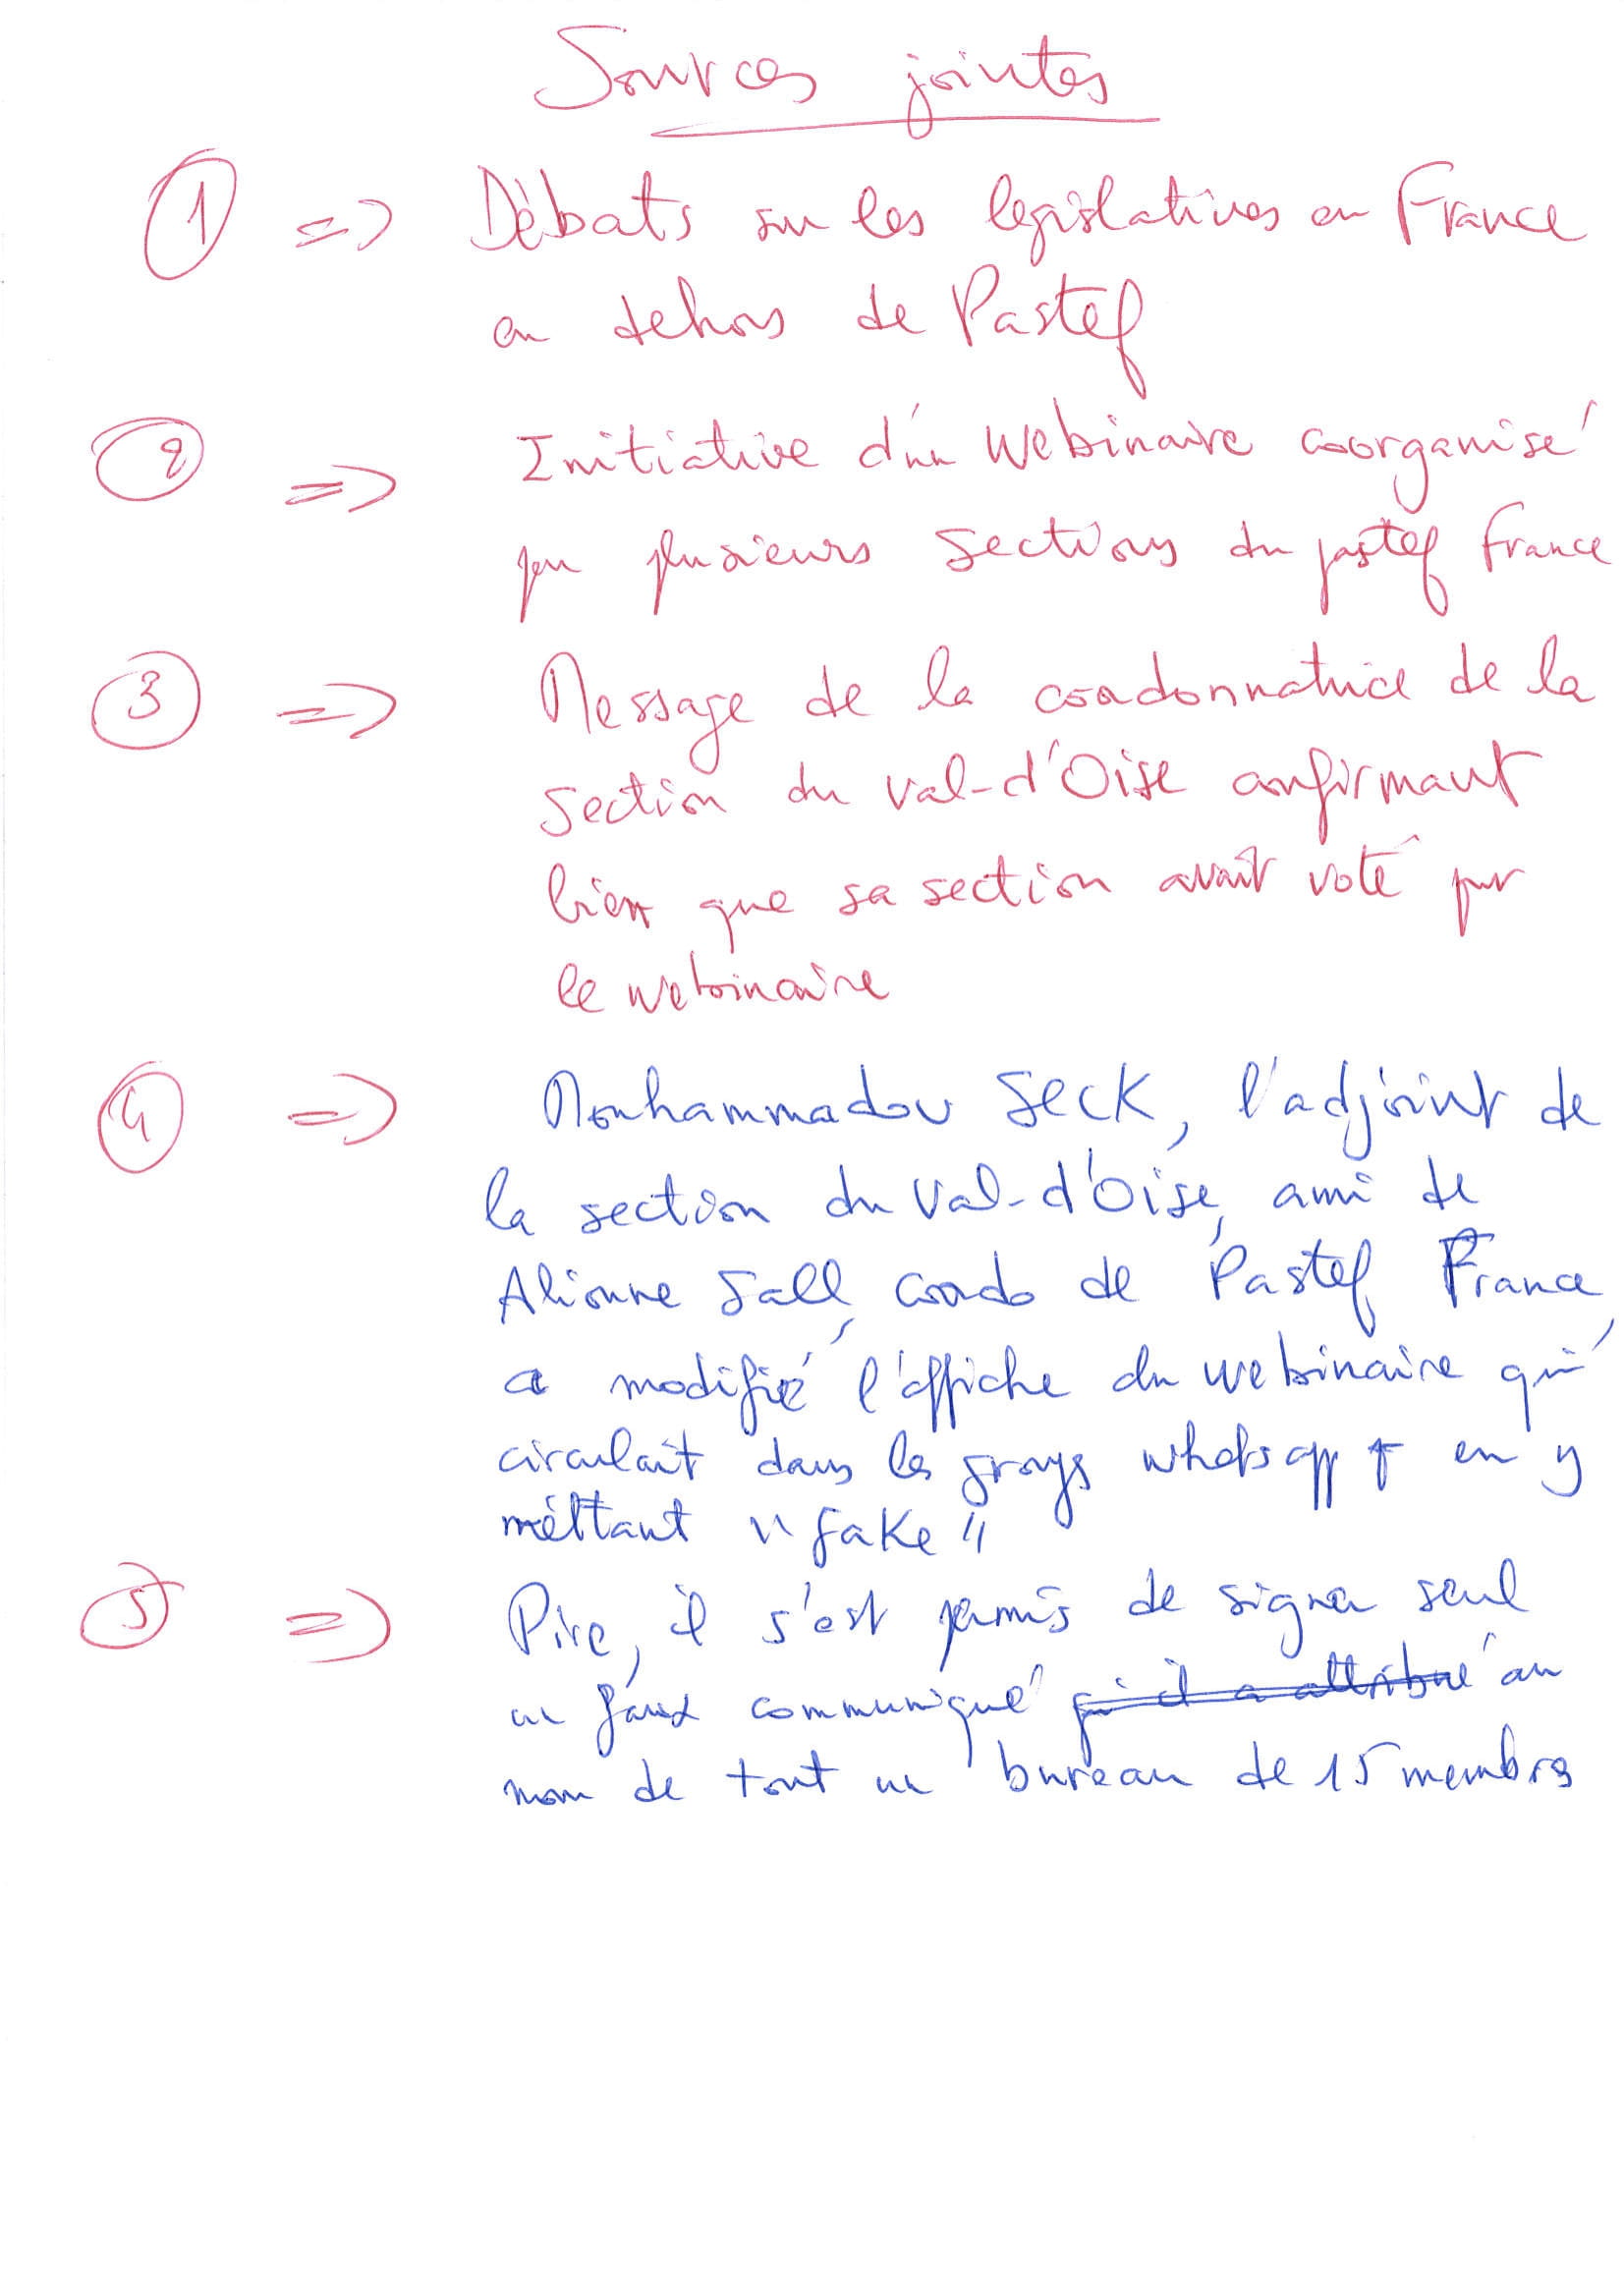 Sources jointes
1 => Débats sur les législatives en France
en dehors de Pastef
2 => Initiative d'un webinaire coorganisé
par plusieurs sections du pastef France
3 => Message de la coordonnatrice de la
section du val-d'Oise confirmant
bien que sa section avait voté pour
le webinaire
4 => Mouhammadou Seck, l'adjoint de
la section du Val-d'Oise, ami de
Alioune Sall, coordo de Pastef France,
a modifié l'affiche du webinaire qui
circulait dans les groups whatsapp en y
méttant "fake"
5 => Pire, il s'est permis de signer seul
un faux communiqué qu'il a attribué au
nom de tout un bureau de 15 membres